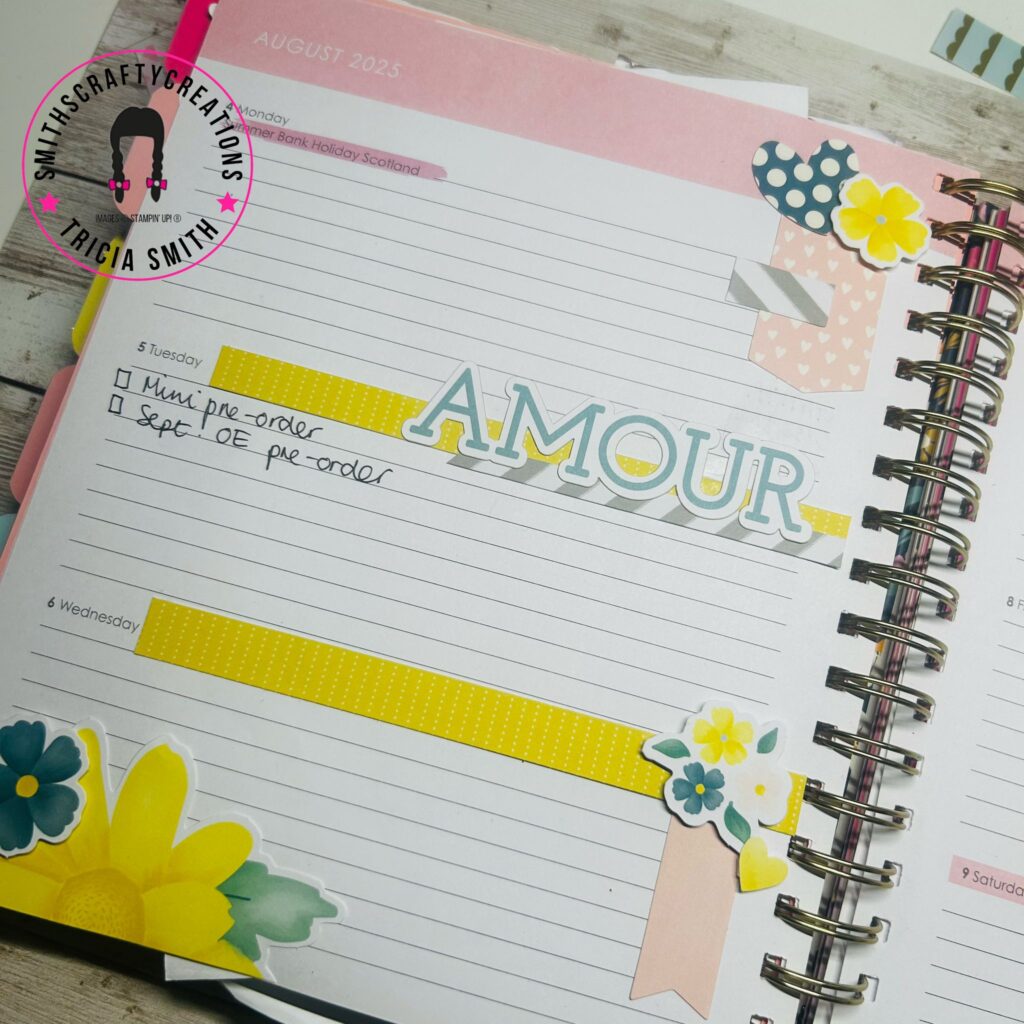 AUGUST 2025
4 Monday
Summer Bank Holiday Scotland
SMITHSCRAFTYCREATIONS
IMAGES © STAMPIN' UP! ®
TRICIA SMITH
5 Tuesday
Mini pre-order
Sept. OE pre-order
AMOUR
6 Wednesday
8 F
9 Saturda